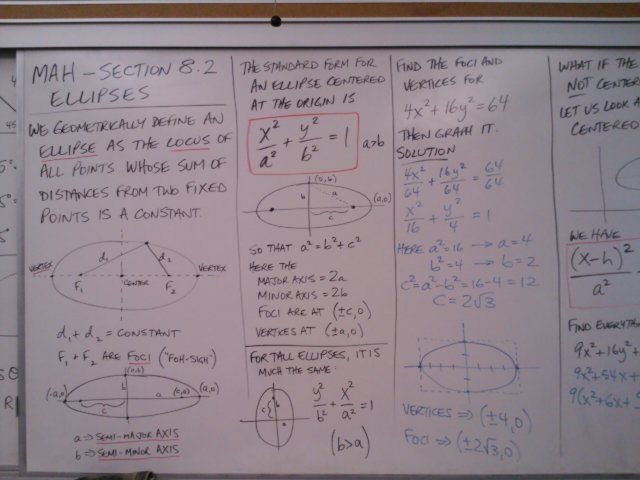 MAH – SECTION 8.2
ELLIPSES
WE GEOMETRICALLY DEFINE AN
ELLIPSE AS THE LOCUS OF
ALL POINTS WHOSE SUM OF
DISTANCES FROM TWO FIXED
POINTS IS A CONSTANT.
d₁ d₂
VERTEX VERTEX
F₁ CENTER F₂
d₁ + d₂ = CONSTANT
F₁ + F₂ ARE FOCI ("FOH-SIGH")
(0,b)
(-a,0) b a (c,0) (a,0)
c
a ⇒ SEMI-MAJOR AXIS
b ⇒ SEMI-MINOR AXIS
THE STANDARD FORM FOR
AN ELLIPSE CENTERED
AT THE ORIGIN IS
x²/a² + y²/b² = 1 a>b
(0,b)
b a (a,0)
c
SO THAT a² = b² + c²
HERE THE
MAJOR AXIS = 2a
MINOR AXIS = 2b
FOCI ARE AT (±c,0)
VERTICES AT (±a,0)
FOR TALL ELLIPSES, IT IS
MUCH THE SAME:
y²/b² + x²/a² = 1
c b
a
(b>a)
FIND THE FOCI AND
VERTICES FOR
4x² + 16y² = 64
THEN GRAPH IT.
SOLUTION
4x²/64 + 16y²/64 = 64/64
x²/16 + y²/4 = 1
HERE a² = 16 → a = 4
b² = 4 → b = 2
c² = a² - b² = 16 - 4 = 12
C = 2√3
VERTICES ⇒ (±4,0)
FOCI ⇒ (±2√3,0)
WHAT IF THE
NOT CENTER
LET US LOOK A
CENTERED
WE HAVE
(x-h)²/a²
FIND EVERYTH
9x² + 16y² +
9x² + 54x +
9(x² + 6x + 9